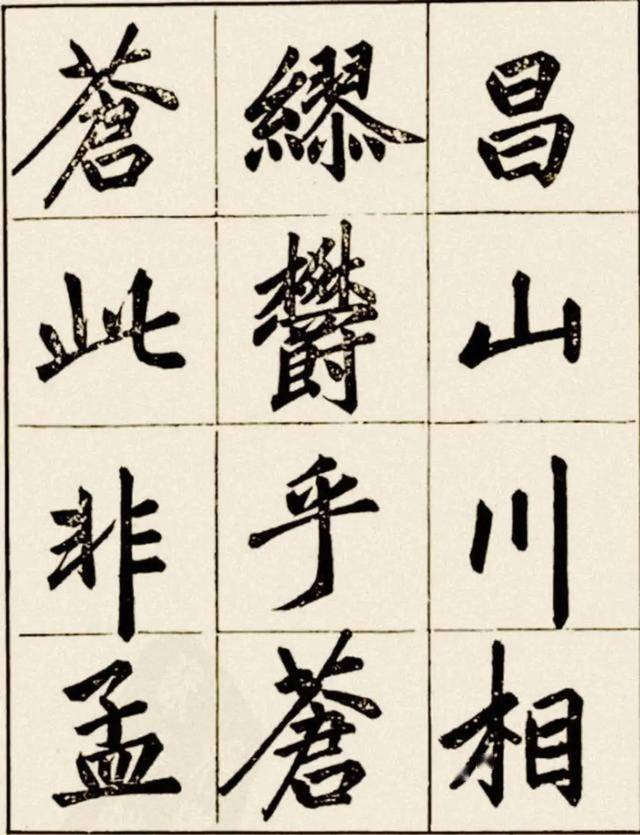 昌山川相
繆鬱乎蒼
蒼此非孟